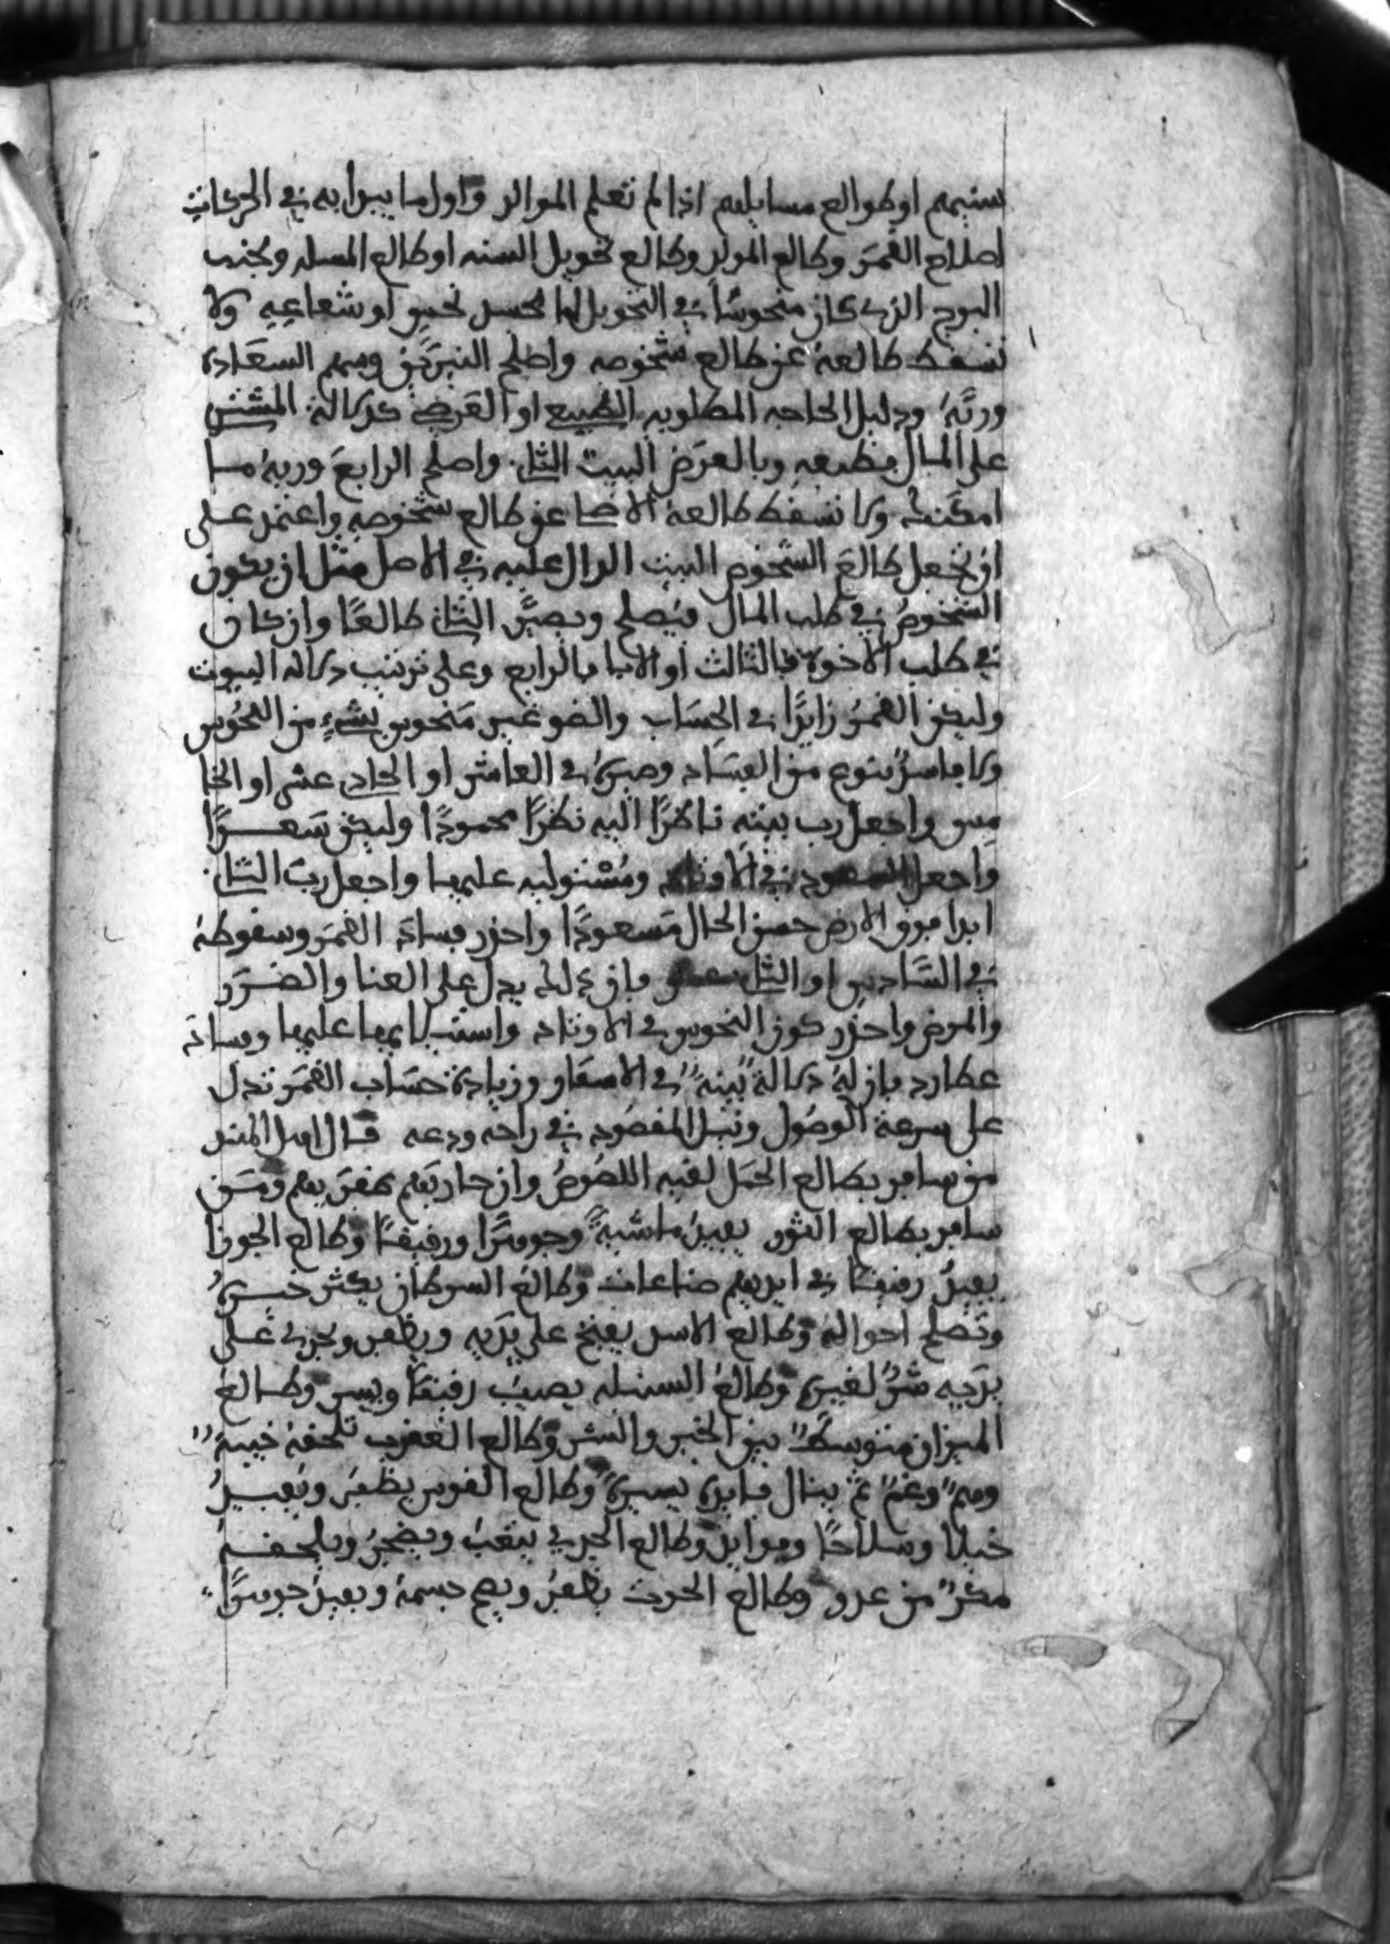 سنيهم او طوالع مسايلهم اذا لم تعلم المواليد واول ما يبدا به في الحركات
اصلاح القمر وطالع المولد وطالع تحويل السنه او طالع المسله وتجنب
البرج الذي كان منحوسًا في التحويل اما بجسد نحس او شعاعه ولا
تسقط طالعهُ عن طالع شخوصه واصلح النيرين وسهم السعادة
وربَّهُ ودليل الحاجه المطلوبه الطبيع او العرضي كدلالة المشتري
على المال بطبعه وبالعرض البيت الثاني واصلح الرابع وربهُ ما
امكنك ولا تسقط طالعهُ الاصلي عن طالع شخوصه واعتمد على
ان تجعل طالع الشخوص البيت الدال عليه في الاصل مثل ان يكون
الشخوصُ في طلب المال فيُصلح ويصيّر الثاني طالعًا وان كان
في طلب الاخوة فبالثالث او الابا بالرابع وعلى ترتيب دلاله البيوت
وليكن القمرُ زايدًا في الحساب والضو غير منحوس بشيءٍ من النحُوس
ولا فاسدٌ بنوع من الفساد وصيرهُ في العاشر او الحادي عشر او الخا
مس واجعل رب بيته ناظرًا اليه نظرًا محمودًا وليكن سعدًا
واجعل السعود في الاوتاد ومُستوليه عليها واجعل ربّ الثاني
ابدا فوق الارض حسن الحال مسعودًا واحذر فساد القمر وسقوطهُ
في السَّادس او الثاني عشر فان ذلك يدل على العنا والضرر
والمرض واحذر كون النحوس في الاوتاد واستيلايها عليها وفساد
عطارد فان لهُ دلالة بينة في الاسفار وزيادة حسَاب القمر تدل
على سرعة الوصُول ونيل المقصُود في راحه ودعه قال اهل الهند
من سافر بطالع الحمل لقيه اللصُوصُ وان حاربَهم يقهرهم ومن
سافر بطالع الثور يفيدُ ماشيةً وجوهرًا ورقيقًا وطالع الجوزا
يفيدُ رقيقًا في ايديهم صناعات وطالعُ السرطان يكثر خيرهُ
وتصلح احوالهُ وطالع الاسد يفتح على يديه ويظفر ويجري على
يديه شرٌّ لغيره وطالعُ السنبله يصيبُ رقيقًا ويسر وطالعُ
الميزان متوسطٌ بين الخير والشر وطالع العقرب تلحقهُ خيبةٌ
وهمٌّ وغمٌّ ثم ينال فايدة يسيرةً وطالع القوس يظفرُ ويفيدُ
خيلا وسلاحًا وفوايد وطالع الجدي يتعبُ ويضجرُ ويلحقه
مكرٌ من عدو وطالع الحوت يظفرُ ويصح جسمهُ ويفيدُ جوهرًا